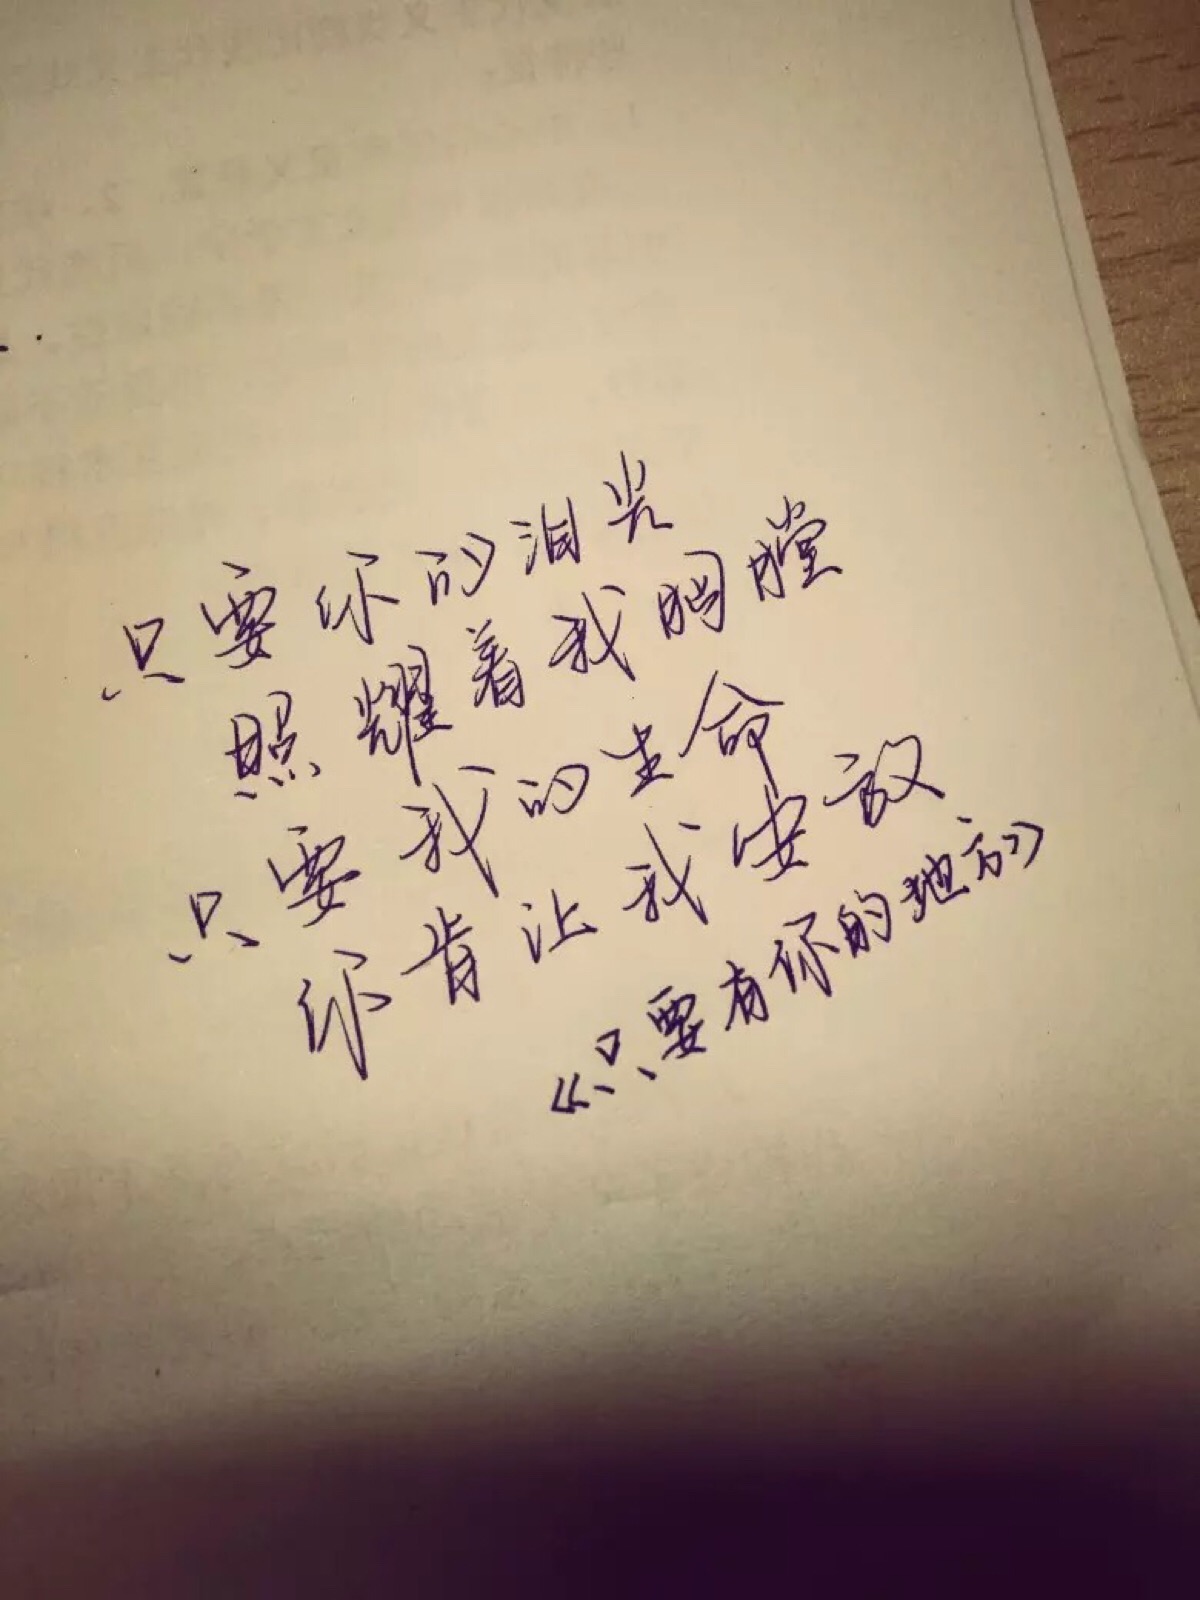 只要你的泪光
照耀着我胸膛
只要我的生命
你肯让我安放
《只要有你的地方》